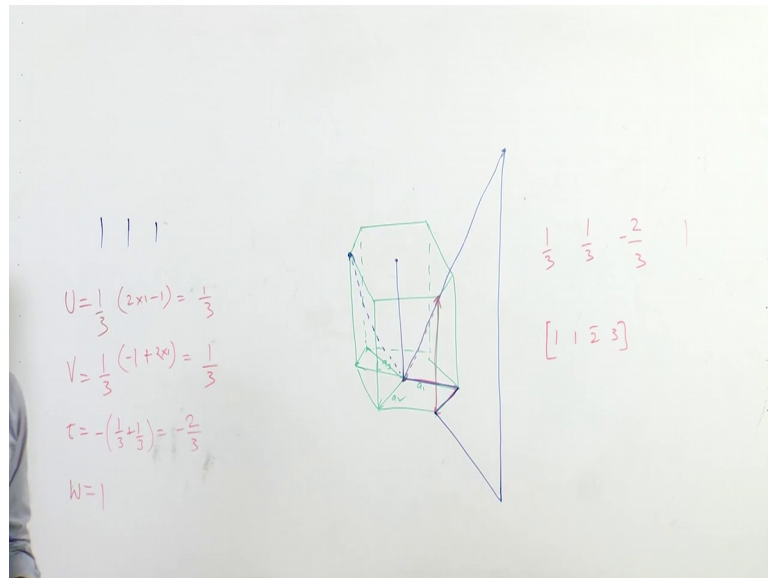 1 1 1
U = 1/3 (2×1-1) = 1/3
V = 1/3 (-1+2×1) = 1/3
t = -(1/3+1/3) = -2/3
W = 1
a₁
a₂
a₃
1/3 1/3 -2/3 1
[1 1 2̄ 3]